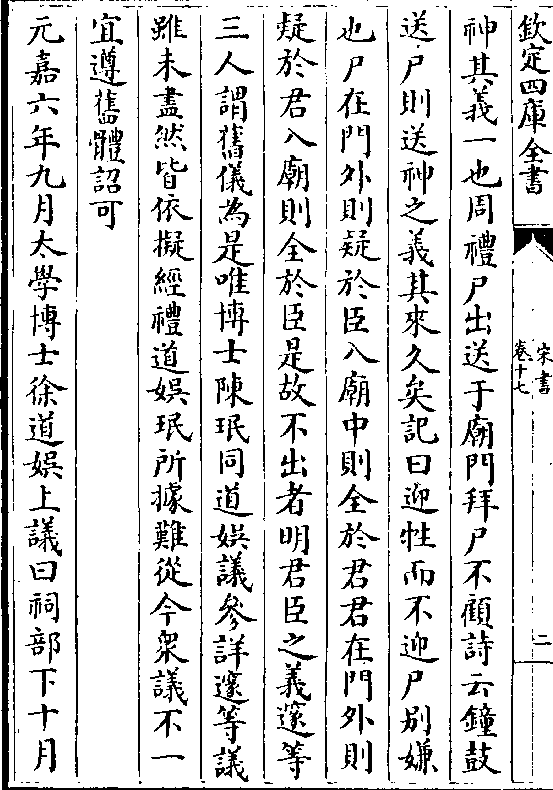 欽定四庫全書
宋書
卷十七
二
神其義一也周禮尸出送于廟門拜尸不顧詩云鐘鼓
送尸則送神之義其來久矣記曰迎牲而不迎尸别嫌
也尸在門外則疑於臣入廟中則全於君君在門外則
疑於君入廟則全於臣是故不出者明君臣之義邃等
三人謂舊儀為是唯博士陳珉同道娯議參詳邃等議
雖未盡然皆依擬經禮道娯珉所據難從今衆議不一
宜遵舊體詔可
元嘉六年九月太學博士徐道娯上議曰祠部下十月